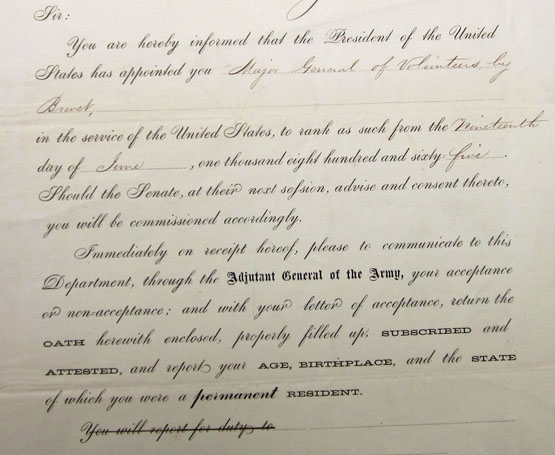 Sir:
You are hereby informed that the President of the United
States has appointed you Major General of Volunteers, by
Brevet,
in the service of the United States, to rank as such from the Nineteenth
day of June, one thousand eight hundred and sixty-five.
Should the Senate, at their next session, advise and consent thereto,
you will be commissioned accordingly.
Immediately on receipt hereof, please to communicate to this
Department, through the Adjutant General of the Army, your acceptance
or non-acceptance; and with your letter of acceptance, return the
OATH herewith enclosed, properly filled up, SUBSCRIBED and
ATTESTED, and report your AGE, BIRTHPLACE, and the STATE
of which you were a permanent RESIDENT.
You will report for duty to